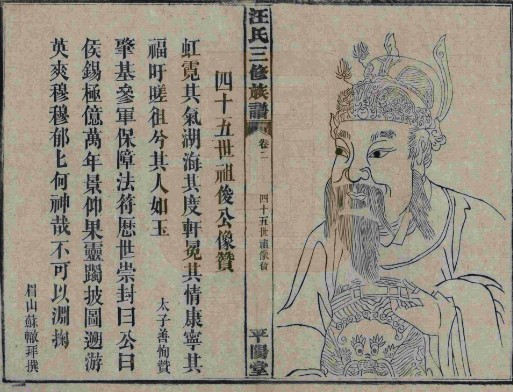 汪氏三修族譜
卷二
四十五世像
平陽堂
四十五世祖俊公像贊
虹霓其氣湖海其度軒冕其情康寧其
福吁嗟徂兮其人如玉
太子善恂贊
肇基參軍保障法符歷世崇封曰公曰
侯錫極億萬年景仰果靈躅披圖遡游
英爽穆穆郁匕何神哉不可以淵掬
眉山蘇轍拜撰